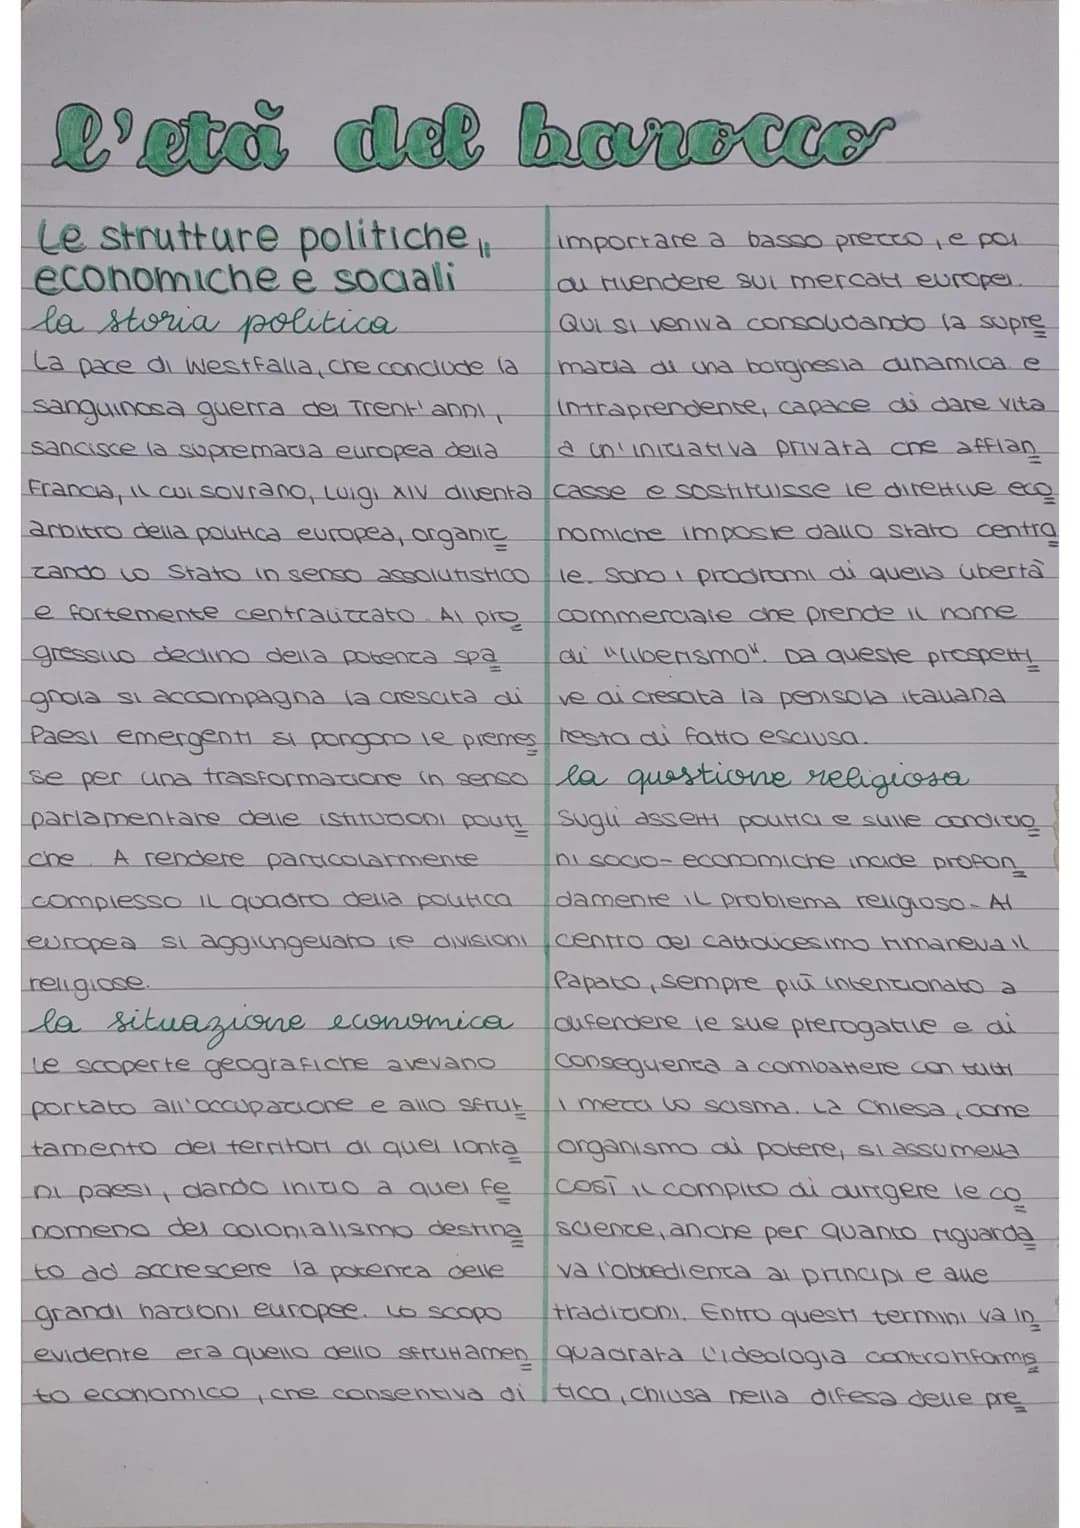 l'età del barocco
Le strutture politiche,
economiche e sociali
la storia politica
La pace di Westfalia, che conclude la
sanguinosa guerra dei Trent'anni,
sancisce la supremazia europea della
Francia, il cui sovrano, Luigi XIV diventa
arbitro della politica europea, organiz
zando lo Stato in senso assolutistico
e fortemente centralizzato. Al pro
gressivo declino della potenza spa
gnola si accompagna la crescita di
Paesi emergenti si pongono le premes
se per una trasformazione in senso
parlamentare delle istituzioni politi
che. A rendere particolarmente
complesso il quadro della politica
europea si aggiungevano le divisioni
religiose.
la situazione economica
Le scoperte geografiche avevano
portato all'occupazione e allo sfrut
tamento dei territori di quei lonta
ni paesi, dando inizio a quel fe
nomeno del colonialismo destina
to ad accrescere la potenza delle
grandi nazioni europee. Lo scopo
evidente era quello dello sfruttamen
to economico, che consentiva di
importare a basso prezzo, e poi
di rivendere sui mercati europei.
Qui si veniva consolidando la supre
mazia di una borghesia dinamica e
intraprendente, capace di dare vita
a un'iniziativa privata che affian
casse e sostituisse le direttive eco
nomiche imposte dallo stato centra
le. Sono i prodromi di quella libertà
commerciale che prende il nome
di "liberismo". Da queste prospetti
ve di crescita la penisola italiana
resta di fatto esclusa.
la questione religiosa
Sugli assetti politici e sulle condizio
ni socio-economiche incide profon
damente il problema religioso. Al
centro del cattolicesimo rimaneva il
Papato, sempre più intenzionato a
difendere le sue prerogative e di
conseguenza a combattere con tutti
i mezzi lo scisma. La Chiesa, come
organismo di potere, si assumeva
così il compito di dirigere le co
scienze, anche per quanto riguarda
va l'obbedienza ai principi e alle
tradizioni. Entro questi termini va in
quadrata l'ideologia controriformis
tica, chiusa nella difesa delle pre